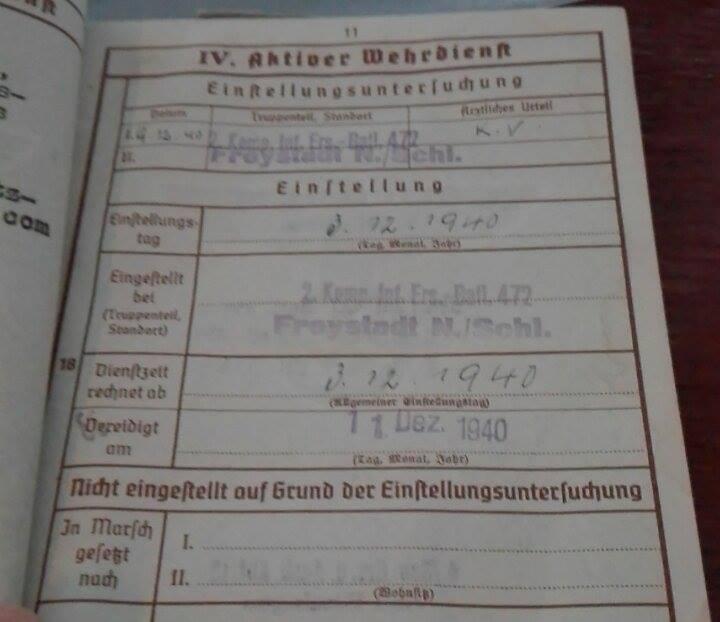 11
IV. Aktiver Wehrdienst
Einstellungsuntersuchung
Datum Truppenteil, Standort Ärztliches Urteil
I. 12.40 2. Komp. Inf. Ers.-Batl. 472 K. V
II. Freystadt N./Schl.
Einstellung
Einstellungs-
tag
3. 12. 1940
(Tag, Monat, Jahr)
Eingestellt
bei
(Truppenteil,
Standort)
2. Komp. Inf. Ers.-Batl. 472
Freystadt N./Schl.
18
Dienstzeit
rechnet ab
3. 12. 1940
(Allgemeiner Einstellungstag)
Vereidigt
am
11. Dez. 1940
(Tag, Monat, Jahr)
Nicht eingestellt auf Grund der Einstellungsuntersuchung
In Marsch
gesetzt
nach
I.
II.
(Wohnsitz)